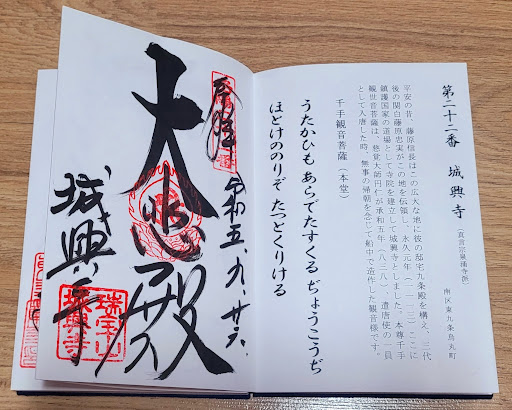 第二十二番　城興寺（真言宗泉涌寺派）
南区東九条烏丸町
平安の昔、藤原信長はこの広大な地に彼の邸宅九条殿を構え、三代
後の関白藤原忠実がこの地を伝領し、永久元年（一一一三）ここに
鎮護国家の道場として寺院を建立して城興寺としました。本尊千手
観世音菩薩は、慈覚大師円仁が承和五年（八三八）、遣唐使の一員
として入唐した時、無事の帰朝を念じて船中で造作した観音様です。
千手観音菩薩（本堂）
うたかひも あらでたすくる ぢょうこうぢ
ほとけののりぞ たっとくりける
奉拝
令和五、九、廿六、
大悲殿
城興寺
瑞宝山
城興寺